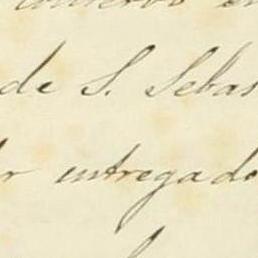 de S. Sebas
r entregado